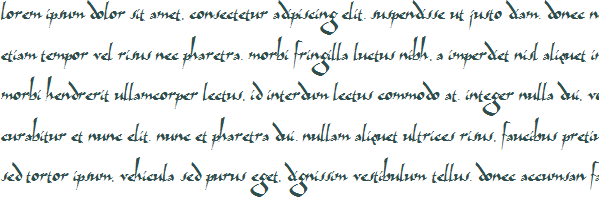 lorem ipsum dolor sit amet, consectetur adipiscing elit. suspendisse ut justo diam. donec n
etiam tempor vel risus nec pharetra. morbi fringilla luctus nibh, a imperdiet nisl aliquet in
morbi hendrerit ullamcorper lectus, id interdum lectus commodo at. integer nulla dui, ve
curabitur et nunc elit. nunc et pharetra dui. nullam aliquet ultrices risus, faucibus pretiu
sed tortor ipsum, vehicula sed purus eget, dignissim vestibulum tellus. donec accumsan fa